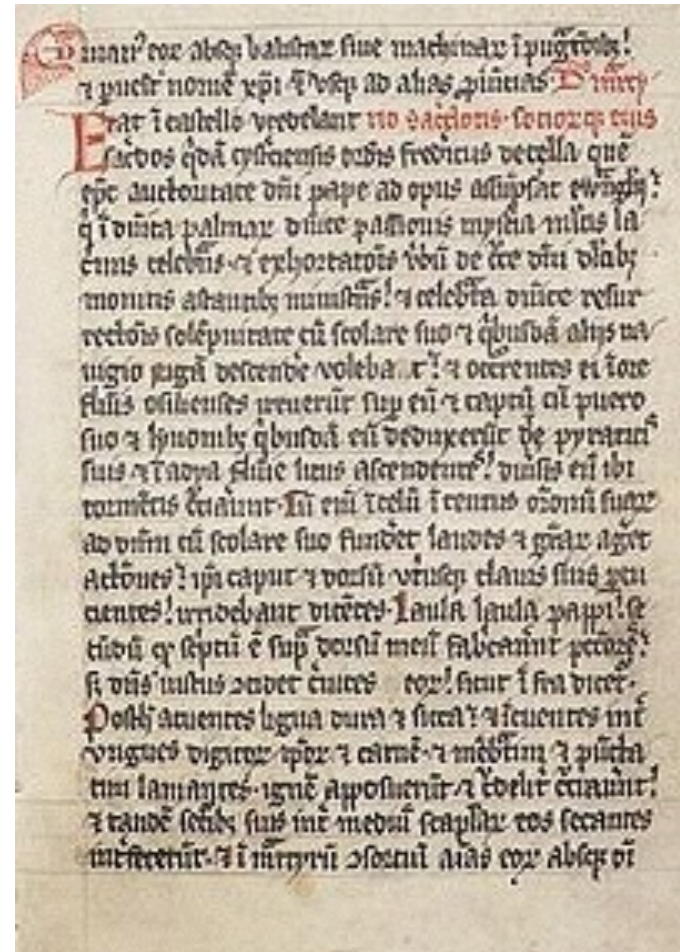 eor absq balistar siue machinar ĩpugtõib!
⁊ puest nomẽ xpi ⁊ vsq ad alias puĩcias D mrty
Erat ĩ castello vredelant rio sacdotis. socorq eius
sacdos qdã cystciensis ordis fredicus de cella quẽ
epc auctoritate dñi pape ad opus assũpsat ewnglij!
q ĩ dñica palmar dñice passionis mystia mltis la
cmis celebns. ⁊ exhortatois vbũ de cce dñi dlab
monitis astantib ministns! ⁊ celebta dñice resur
rectois solẽpnitate cũ scolare suo ⁊ qbusdã alijs na
uigio rigã descendẽ volebat! ⁊ occrentes ei ĩ ore
flũis osilienses irruerũt sup eũ ⁊ captũ cũ puero
suo ⁊ lyuonib qbusdã eũ deduxerũt ĩ pyratic
suis ⁊ ĩ adya fluuie litus ascendentes! diũsis eũ ibi
tormẽtis cciaũnt. Cũ eĩ ĩ celũ ĩtentus orõnũ suar
ad dñm cũ scolare suo fundet laudes ⁊ gřar aget
actões! ipi caput ⁊ dorsũ vtriusq clauis suis pcu
cientes! irridebant dicẽtes. laula laula pappi! se
cũdũ qd scptũ ẽ sup dorsũ meũ fabcaũnt pccores!
s dñs iustus ↄcidet cuices eor! sicut ĩfra dicet.
Posth acuentes ligna dura ⁊ sicca! ⁊ ĩcuientes inť
vngues digitor ipor ⁊ carnẽ. ⁊ mẽbtim ⁊ pũcta
tim laniantes. ignẽ apposuerũt ⁊ cdelit cciaũnt!
⁊ tandẽ secib suis inť mediũ scaplar eos secantes
intfecerũt. ⁊ ĩ mrtyrũ ↄsortiũ aĩas eor absq oĩ